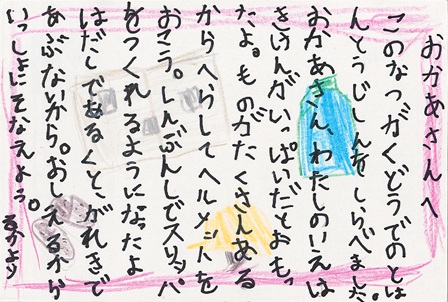 おかあさんへ
このなつがくどうでのとは
んとうじしんをしらべました。
おかあさん、わたしのいえは
きけんがいっぱいだとおもっ
たよ。ものがたくさんある
からへらしてヘルメットを
おこう。しんぶんしでスリッパ
をつくれるようになったよ
はだしであるくと、がれきで
あぶないから。おしえるから
いっしょにそなえよう。るかより